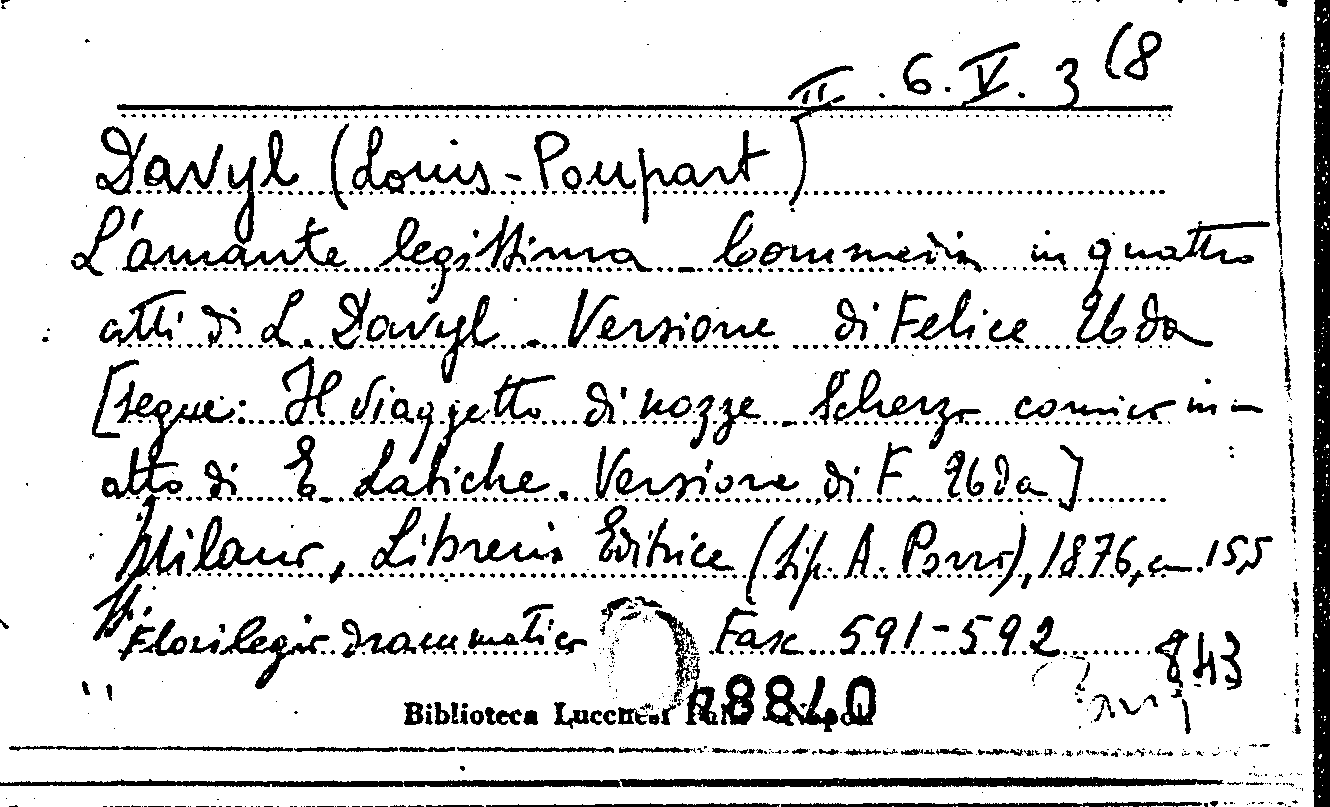 II. 6. V. 3 (8
Davyl (Louis-Poupart)
L'amante legittima - Commedia in quattro
atti di L. Davyl. Versione di Felice Ubda
[segue: Il viaggetto di nozze. Scherzo comico in un
atto di E. Labiche. Versione di F. Ubda]
Milano, Libreria Editrice (tip. A. Porro), 1876, cm. 15,5
Florilegio drammatico Fasc 591-592
843
8840
Biblioteca Lucchesi Palli - Napoli